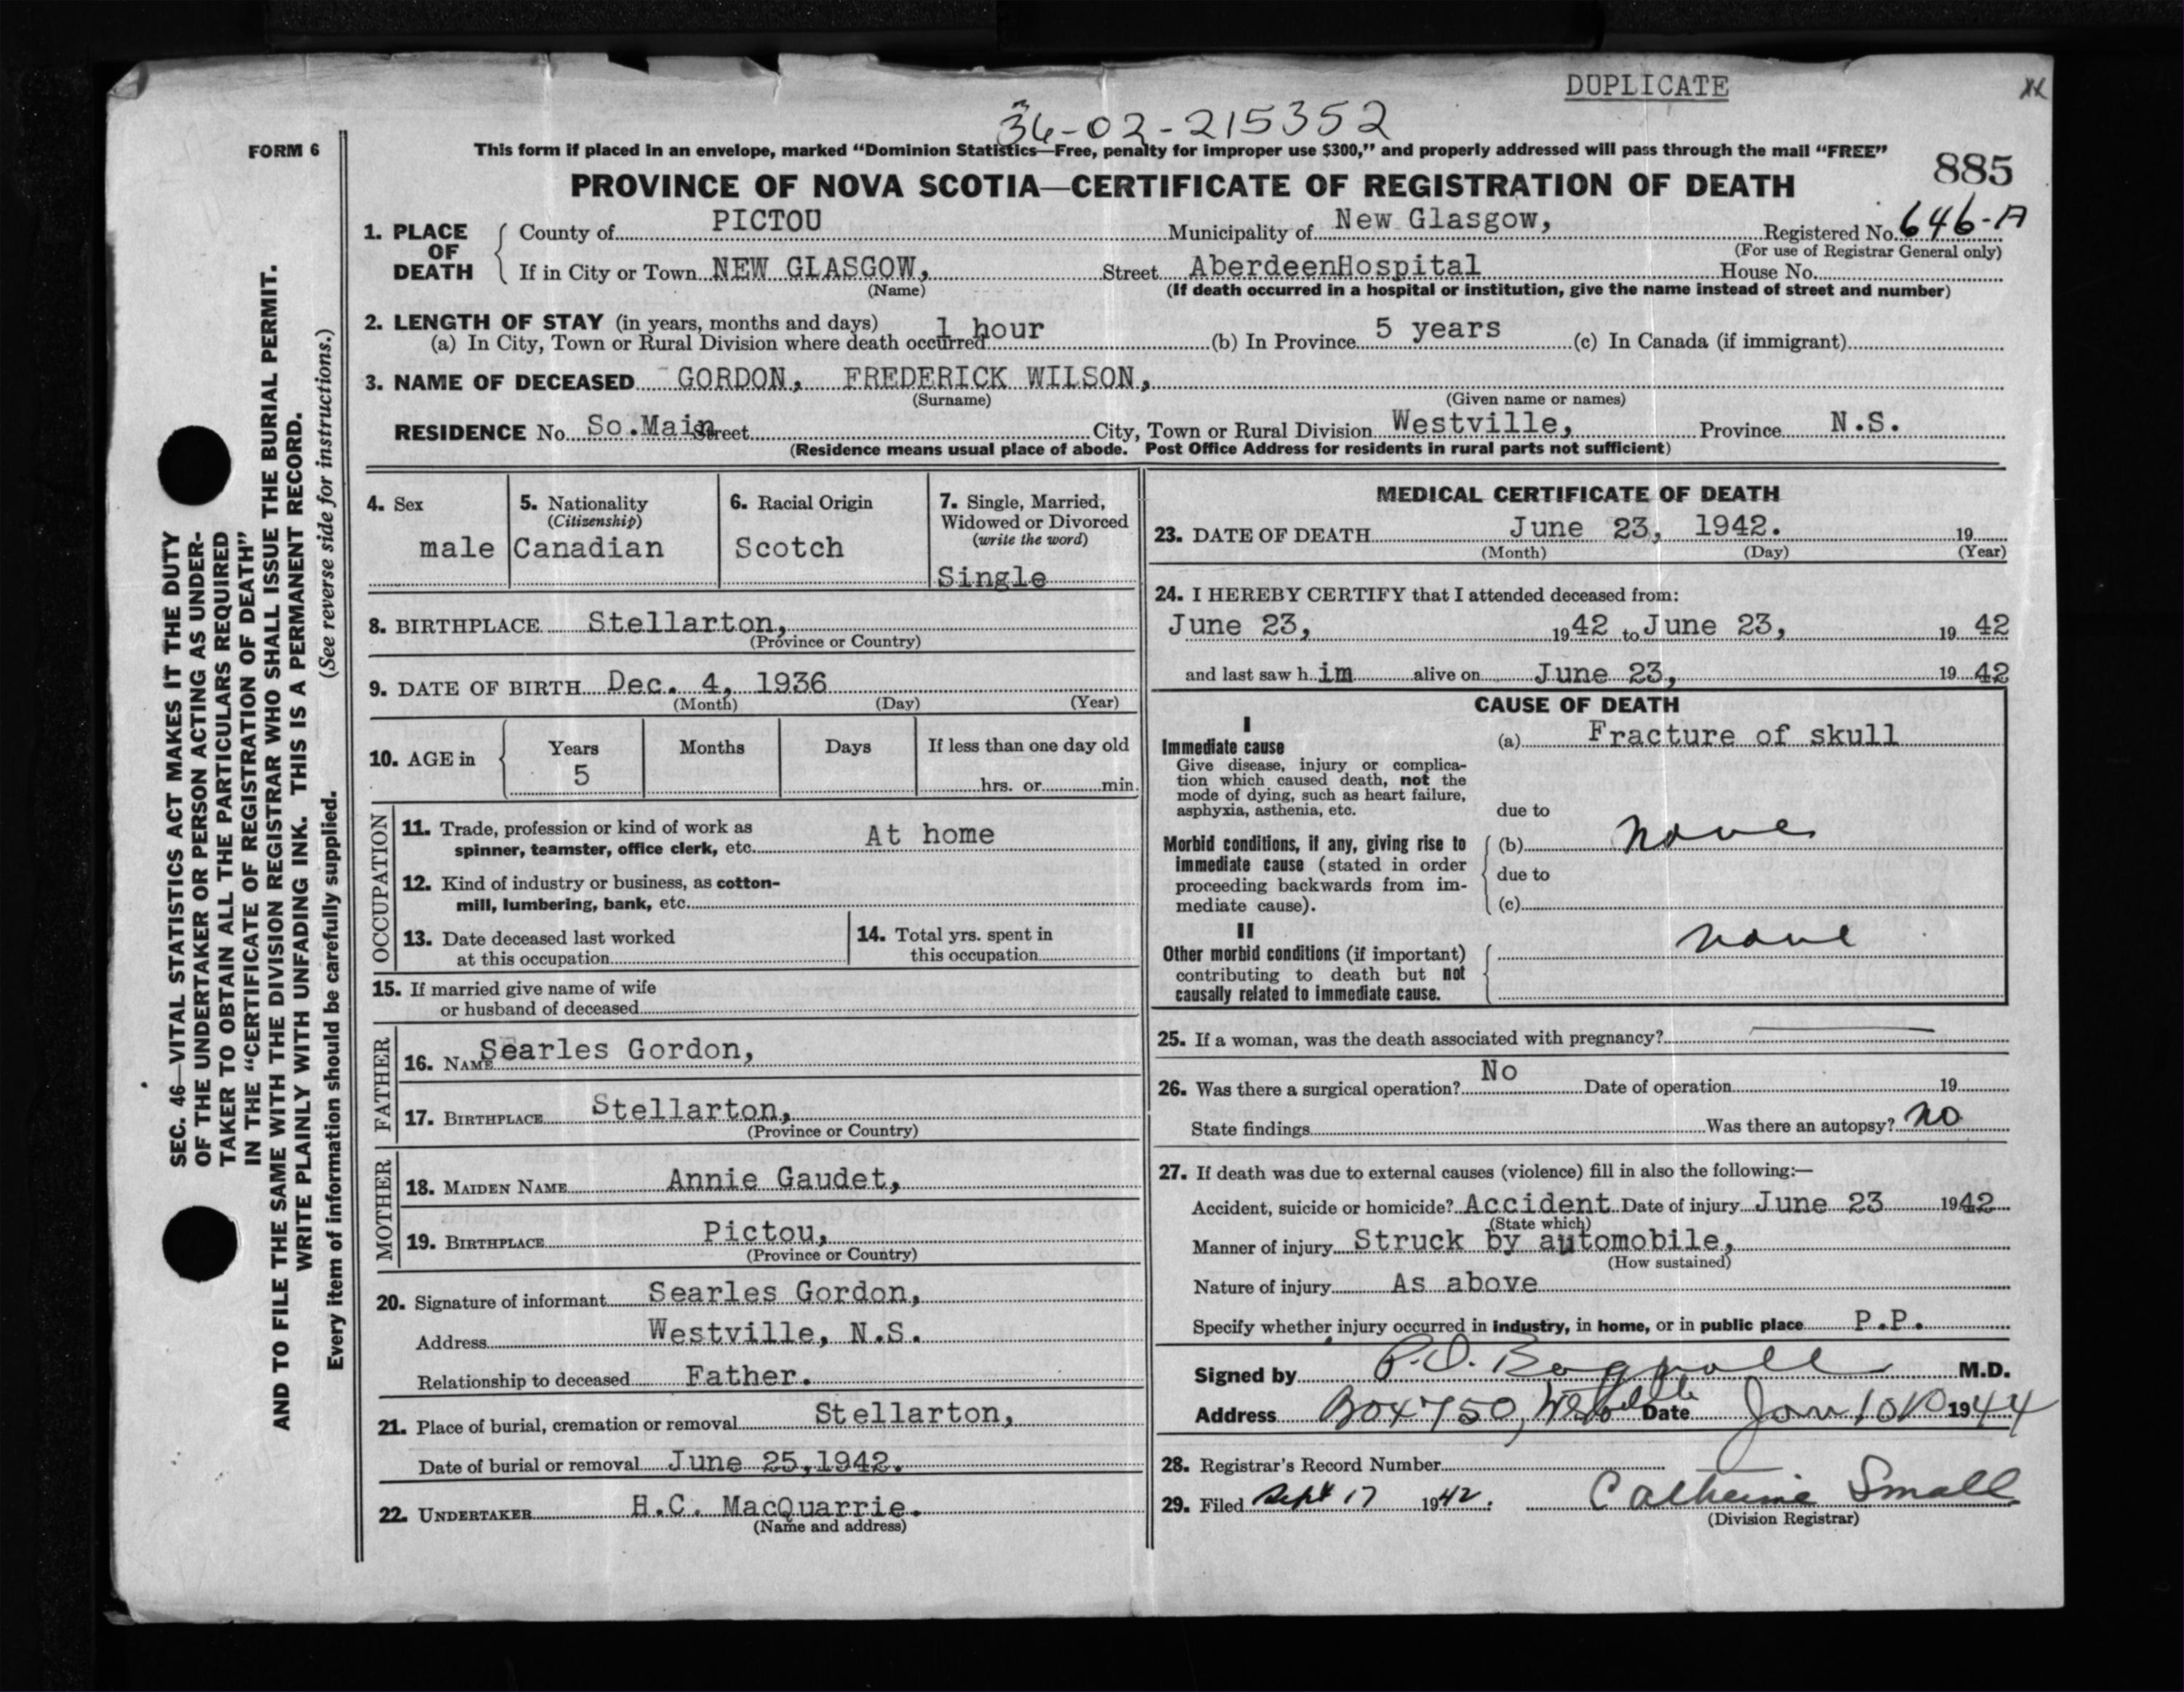 DUPLICATE
36-02-215352
FORM 6
This form if placed in an envelope, marked "Dominion Statistics—Free, penalty for improper use $300," and properly addressed will pass through the mail "FREE"
885
PROVINCE OF NOVA SCOTIA—CERTIFICATE OF REGISTRATION OF DEATH
1. PLACE OF DEATH County of PICTOU Municipality of New Glasgow, Registered No. 646-A
(For use of Registrar General only)
If in City or Town NEW GLASGOW, Street AberdeenHospital House No.
(Name) (If death occurred in a hospital or institution, give the name instead of street and number)
2. LENGTH OF STAY (in years, months and days)
(a) In City, Town or Rural Division where death occurred 1 hour (b) In Province 5 years (c) In Canada (if immigrant)
3. NAME OF DECEASED GORDON, FREDERICK WILSON,
(Surname) (Given name or names)
RESIDENCE No. So.Main Street City, Town or Rural Division Westville, Province N.S.
(Residence means usual place of abode. Post Office Address for residents in rural parts not sufficient)
4. Sex male
5. Nationality (Citizenship) Canadian
6. Racial Origin Scotch
7. Single, Married, Widowed or Divorced (write the word) Single
8. BIRTHPLACE Stellarton,
(Province or Country)
9. DATE OF BIRTH Dec. 4, 1936
(Month) (Day) (Year)
10. AGE in Years Months Days If less than one day old
5 hrs. or min.
OCCUPATION
11. Trade, profession or kind of work as
spinner, teamster, office clerk, etc. At home
12. Kind of industry or business, as cotton-
mill, lumbering, bank, etc.
13. Date deceased last worked
at this occupation
14. Total yrs. spent in
this occupation
15. If married give name of wife
or husband of deceased
FATHER
16. NAME Searles Gordon,
17. BIRTHPLACE Stellarton,
(Province or Country)
MOTHER
18. MAIDEN NAME Annie Gaudet,
19. BIRTHPLACE Pictou,
(Province or Country)
20. Signature of informant Searles Gordon,
Address Westville, N.S.
Relationship to deceased Father.
21. Place of burial, cremation or removal Stellarton,
Date of burial or removal June 25,1942.
22. UNDERTAKER H.C. MacQuarrie.
(Name and address)
MEDICAL CERTIFICATE OF DEATH
23. DATE OF DEATH June 23, 1942. 19
(Month) (Day) (Year)
24. I HEREBY CERTIFY that I attended deceased from:
June 23, 1942 to June 23, 19 42
and last saw h im alive on June 23, 19 42
CAUSE OF DEATH
I
Immediate cause (a) Fracture of skull
Give disease, injury or complica-
tion which caused death, not the
mode of dying, such as heart failure,
asphyxia, asthenia, etc. due to
Morbid conditions, if any, giving rise to (b) None
immediate cause (stated in order
proceeding backwards from im- due to
mediate cause). (c)
II
Other morbid conditions (if important) none
contributing to death but not
causally related to immediate cause.
25. If a woman, was the death associated with pregnancy?
26. Was there a surgical operation? No Date of operation 19
State findings Was there an autopsy? No
27. If death was due to external causes (violence) fill in also the following:—
Accident, suicide or homicide? Accident Date of injury June 23 1942
(State which)
Manner of injury Struck by automobile,
(How sustained)
Nature of injury As above
Specify whether injury occurred in industry, in home, or in public place P.P.
Signed by M.D.
Address Box 750, Date 1944
28. Registrar's Record Number
29. Filed Sept 17 1942. Catherine Small
(Division Registrar)
SEC. 46—VITAL STATISTICS ACT MAKES IT THE DUTY
OF THE UNDERTAKER OR PERSON ACTING AS UNDER-
TAKER TO OBTAIN ALL THE PARTICULARS REQUIRED
IN THE "CERTIFICATE OF REGISTRATION OF DEATH"
AND TO FILE THE SAME WITH THE DIVISION REGISTRAR WHO SHALL ISSUE THE BURIAL PERMIT.
WRITE PLAINLY WITH UNFADING INK. THIS IS A PERMANENT RECORD.
Every item of information should be carefully supplied. (See reverse side for instructions.)